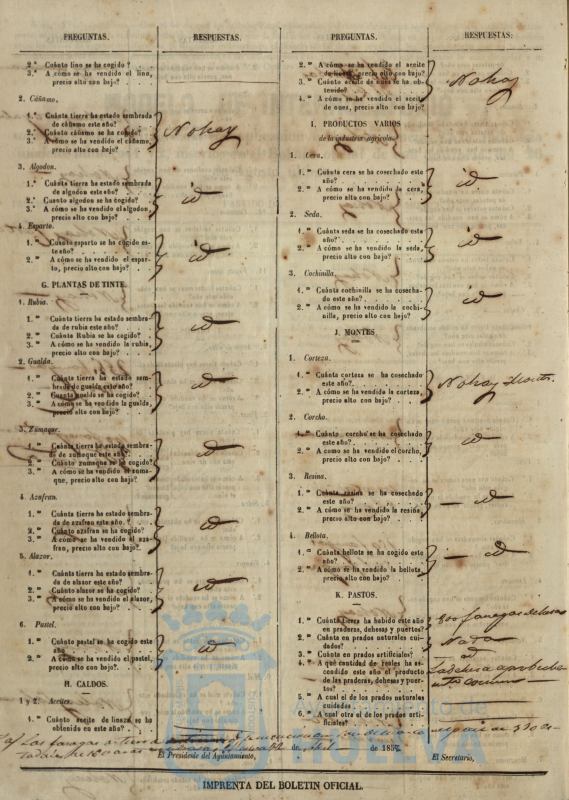 PREGUNTAS.
RESPUESTAS.
2.ª Cuánto lino se ha cogido?
3.ª A cómo se ha vendido el lino,
precio alto con bajo?
2. Cáñamo.
1.ª Cuánta tierra ha estado sembrada
de cáñamo este año?
2.ª Cuánto cáñamo se ha cogido?
3.ª A cómo se ha vendido el cáñamo,
precio alto con bajo?
No hay
3. Algodon.
1.ª Cuánta tierra ha estado sembrada
de algodon este año?
2.ª Cuanto algodon se ha cogido?
3.ª A cómo se ha vendido el algodon,
precio alto con bajo?
id
4. Esparto.
1.ª Cuánto esparto se ha cogido es-
te año?
2.ª A cómo se ha vendido el espar-
to, precio alto con bajo?
id
G. PLANTAS DE TINTE.
1. Rubia.
1.ª Cuánta tierra ha estado sembra-
da de rubia este año?
2.ª Cuánta Rubia se ha cogido?
3.ª A cómo se ha vendido la rubia,
precio alto con bajo?
id
2. Gualda.
1.ª Cuánta tierra ha estado sem-
brada de gualda este año?
2.ª Cuánta gualda se ha cogido?
3.ª A cómo se ha vendido la gualda,
precio alto con bajo?
id
3. Zumaque.
1.ª Cuánta tierra ha estado sembra-
da de zumaque este año?
2.ª Cuánto zumaque se ha cogido?
3.ª A cómo se ha vendido el zuma-
que, precio alto con bajo?
id
4. Azafran.
1.ª Cuánta tierra ha estado sembra-
da de azafran este año?
2.ª Cuánto azafran se ha cogido?
3.ª A cómo se ha vendido el aza-
fran, precio alto con bajo?
id
5. Alazor.
1.ª Cuánta tierra ha estado sembra-
da de alazor este año?
2.ª Cuánto alazor se ha cogido?
3.ª A cómo se ha vendido el alazor,
precio alto con bajo?
id
6. Pastel.
1.ª Cuánto pastel se ha cogido este
año?
2.ª A cómo se ha vendido el pastel,
precio alto con bajo?
id
H. CALDOS.
1 y 2. Aceites.
1.ª Cuánto aceite de linaza se ha
obtenido en este año?
PREGUNTAS.
RESPUESTAS:
2.ª A cómo se ha vendido el aceite
de linaza, precio alto con bajo?
3.ª Cuánto aceite de nues se ha ob-
tenido?
4.ª A cómo se ha vendido el aceite
de nues, precio alto con bajo?
No hay
I. PRODUCTOS VARIOS
de la industria agrícola.
1. Cera.
1.ª Cuánta cera se ha cosechado este
año?
2.ª A cómo se ha vendido la cera,
precio alto con bajo?
id
2. Seda.
1.ª Cuánta seda se ha cosechado este
año?
2.ª A cómo se ha vendido la seda,
precio alto con bajo?
id
3. Cochinilla.
1.ª Cuánta cochinilla se ha cosecha-
do este año?
2.ª A cómo se ha vendido la cochi-
nilla, precio alto con bajo?
id
J. MONTES.
1. Corteza.
1.ª Cuánta corteza se ha cosechado
este año?
2.ª A cómo se ha vendido la corteza,
precio alto con bajo?
No hay
2. Corcho.
1.ª Cuánto corcho se ha cosechado
este año?
2.ª A como se ha vendido el corcho,
precio alto con bajo?
id
3. Resina.
1.ª Cuánta resina se ha cosechado
este año?
2.ª A cómo se ha vendido la resina
precio alto con bajo?
id
4. Bellota.
1.ª Cuánta bellota se ha cogido este
año?
2.ª A cómo se ha vendido la bellota,
precio alto con bajo?
id
K. PASTOS.
1.ª Cuánta tierra ha habido este año
en praderas, dehesas y puertos?
2.ª Cuánta en prados naturales cui-
dados?
3.ª Cuánta en prados artificiales?
4.ª A qué cantidad de reales ha as-
cendido este año el producto
de las praderas, dehesas y puer-
tos?
5.ª A cual el de los prados naturales
cuidados
6.ª A cual otra el de los prados arti-
ficiales?
fanegas
Nada
id
La dehesa
comun
Las fanegas
de
de 185
El Presidente del Ayuntamiento,
El Secretario,
Ayuntamiento de
HUELVA
IMPRENTA DEL BOLETIN OFICIAL.